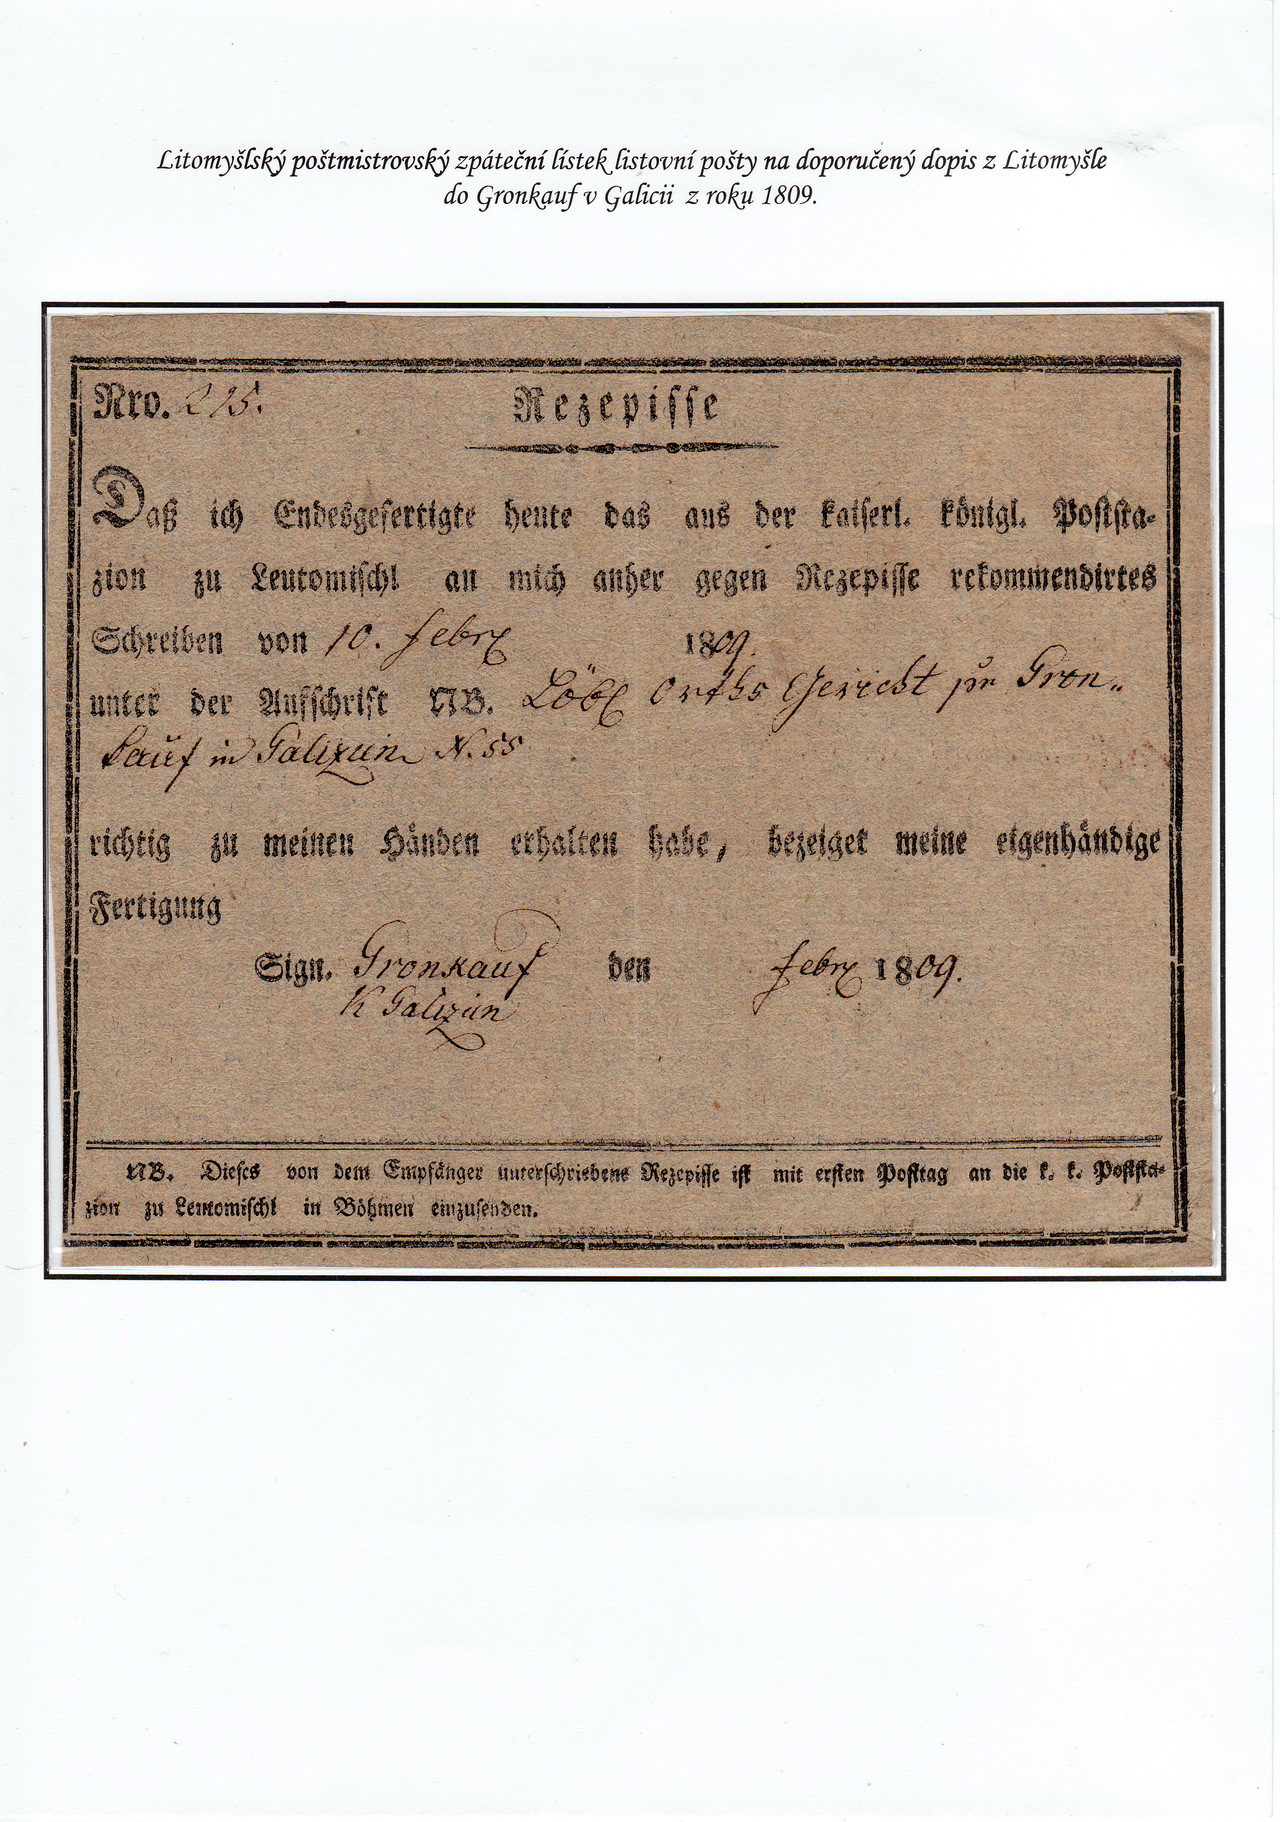 Litomyšlský poštmistrovský zpáteční lístek listovní pošty na doporučený dopis z Litomyšle
do Gronkauf v Galicii z roku 1809.
Nro. 215.
Rezepisse
Daß ich Endesgefertigte heute das aus der kaiserl. königl. Poststa-
zion zu Leutomischl an mich anher gegen Rezepisse rekommendirtes
Schreiben von 10. febr 1809.
unter der Aufschrift NB. Löbl Orths Gericht zu Gron„
kauf in Galizien N. 55
richtig zu meinen Händen erhalten habe, bezeiget meine eigenhändige
Fertigung
Sign. Gronkauf den febr 1809.
K Galizien
NB. Dieses von dem Empfänger unterschriebene Rezepisse ist mit ersten Posttag an die k. k. Poststa-
zion zu Leutomischl in Böhmen einzusenden.